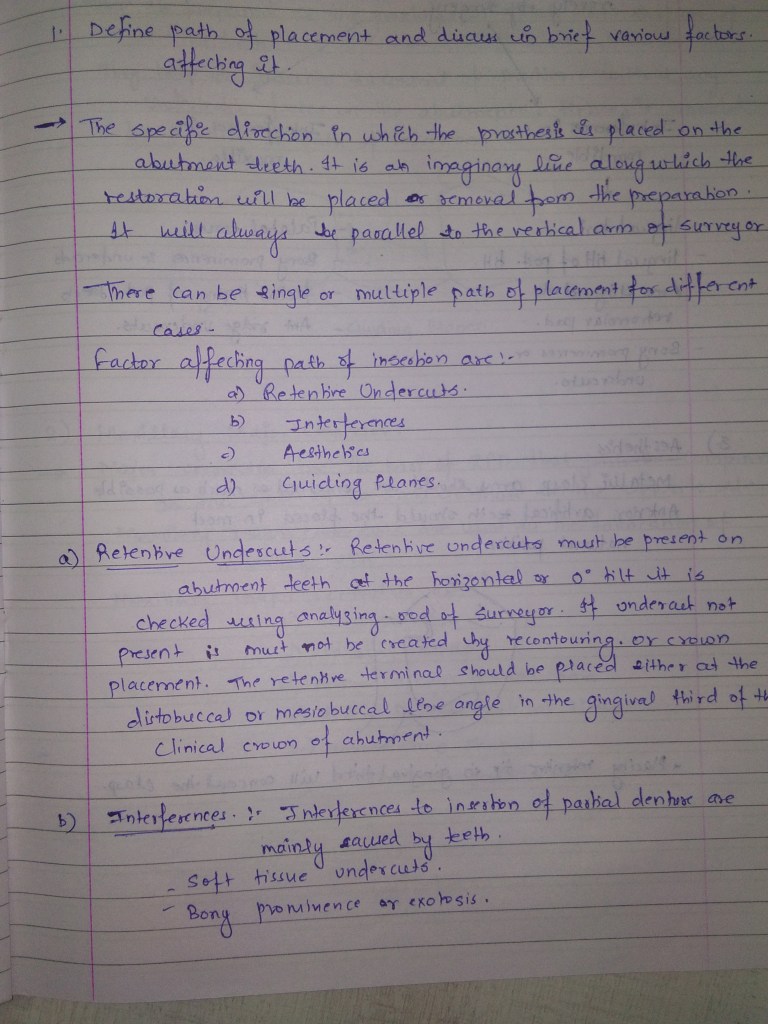 1. Define path of placement and discuss in brief various factors.
affecting it.
→ The specific direction in which the prosthesis is placed on the
abutment teeth. It is an imaginary line along which the
restoration will be placed or removal from the preparation.
It will always be parallel to the vertical arm of surveyor
There can be single or multiple path of placement for different
cases.
Factor affecting path of insertion are :-
a) Retentive Undercuts.
b) Interferences
c) Aesthetics
d) Guiding Planes.
a) Retentive Undercuts :- Retentive undercuts must be present on
abutment teeth at the horizontal or 0° tilt it is
checked using analyzing rod of surveyor. If undercut not
present is must not be created by recontouring. or crown
placement. The retentive terminal should be placed either at the
distobuccal or mesiobuccal line angle in the gingival third of th
Clinical crown of abutment.
b) Interferences. :- Interferences to insertion of partial denture are
mainly caused by teeth.
- Soft tissue undercuts.
- Bony prominence or exotosis.